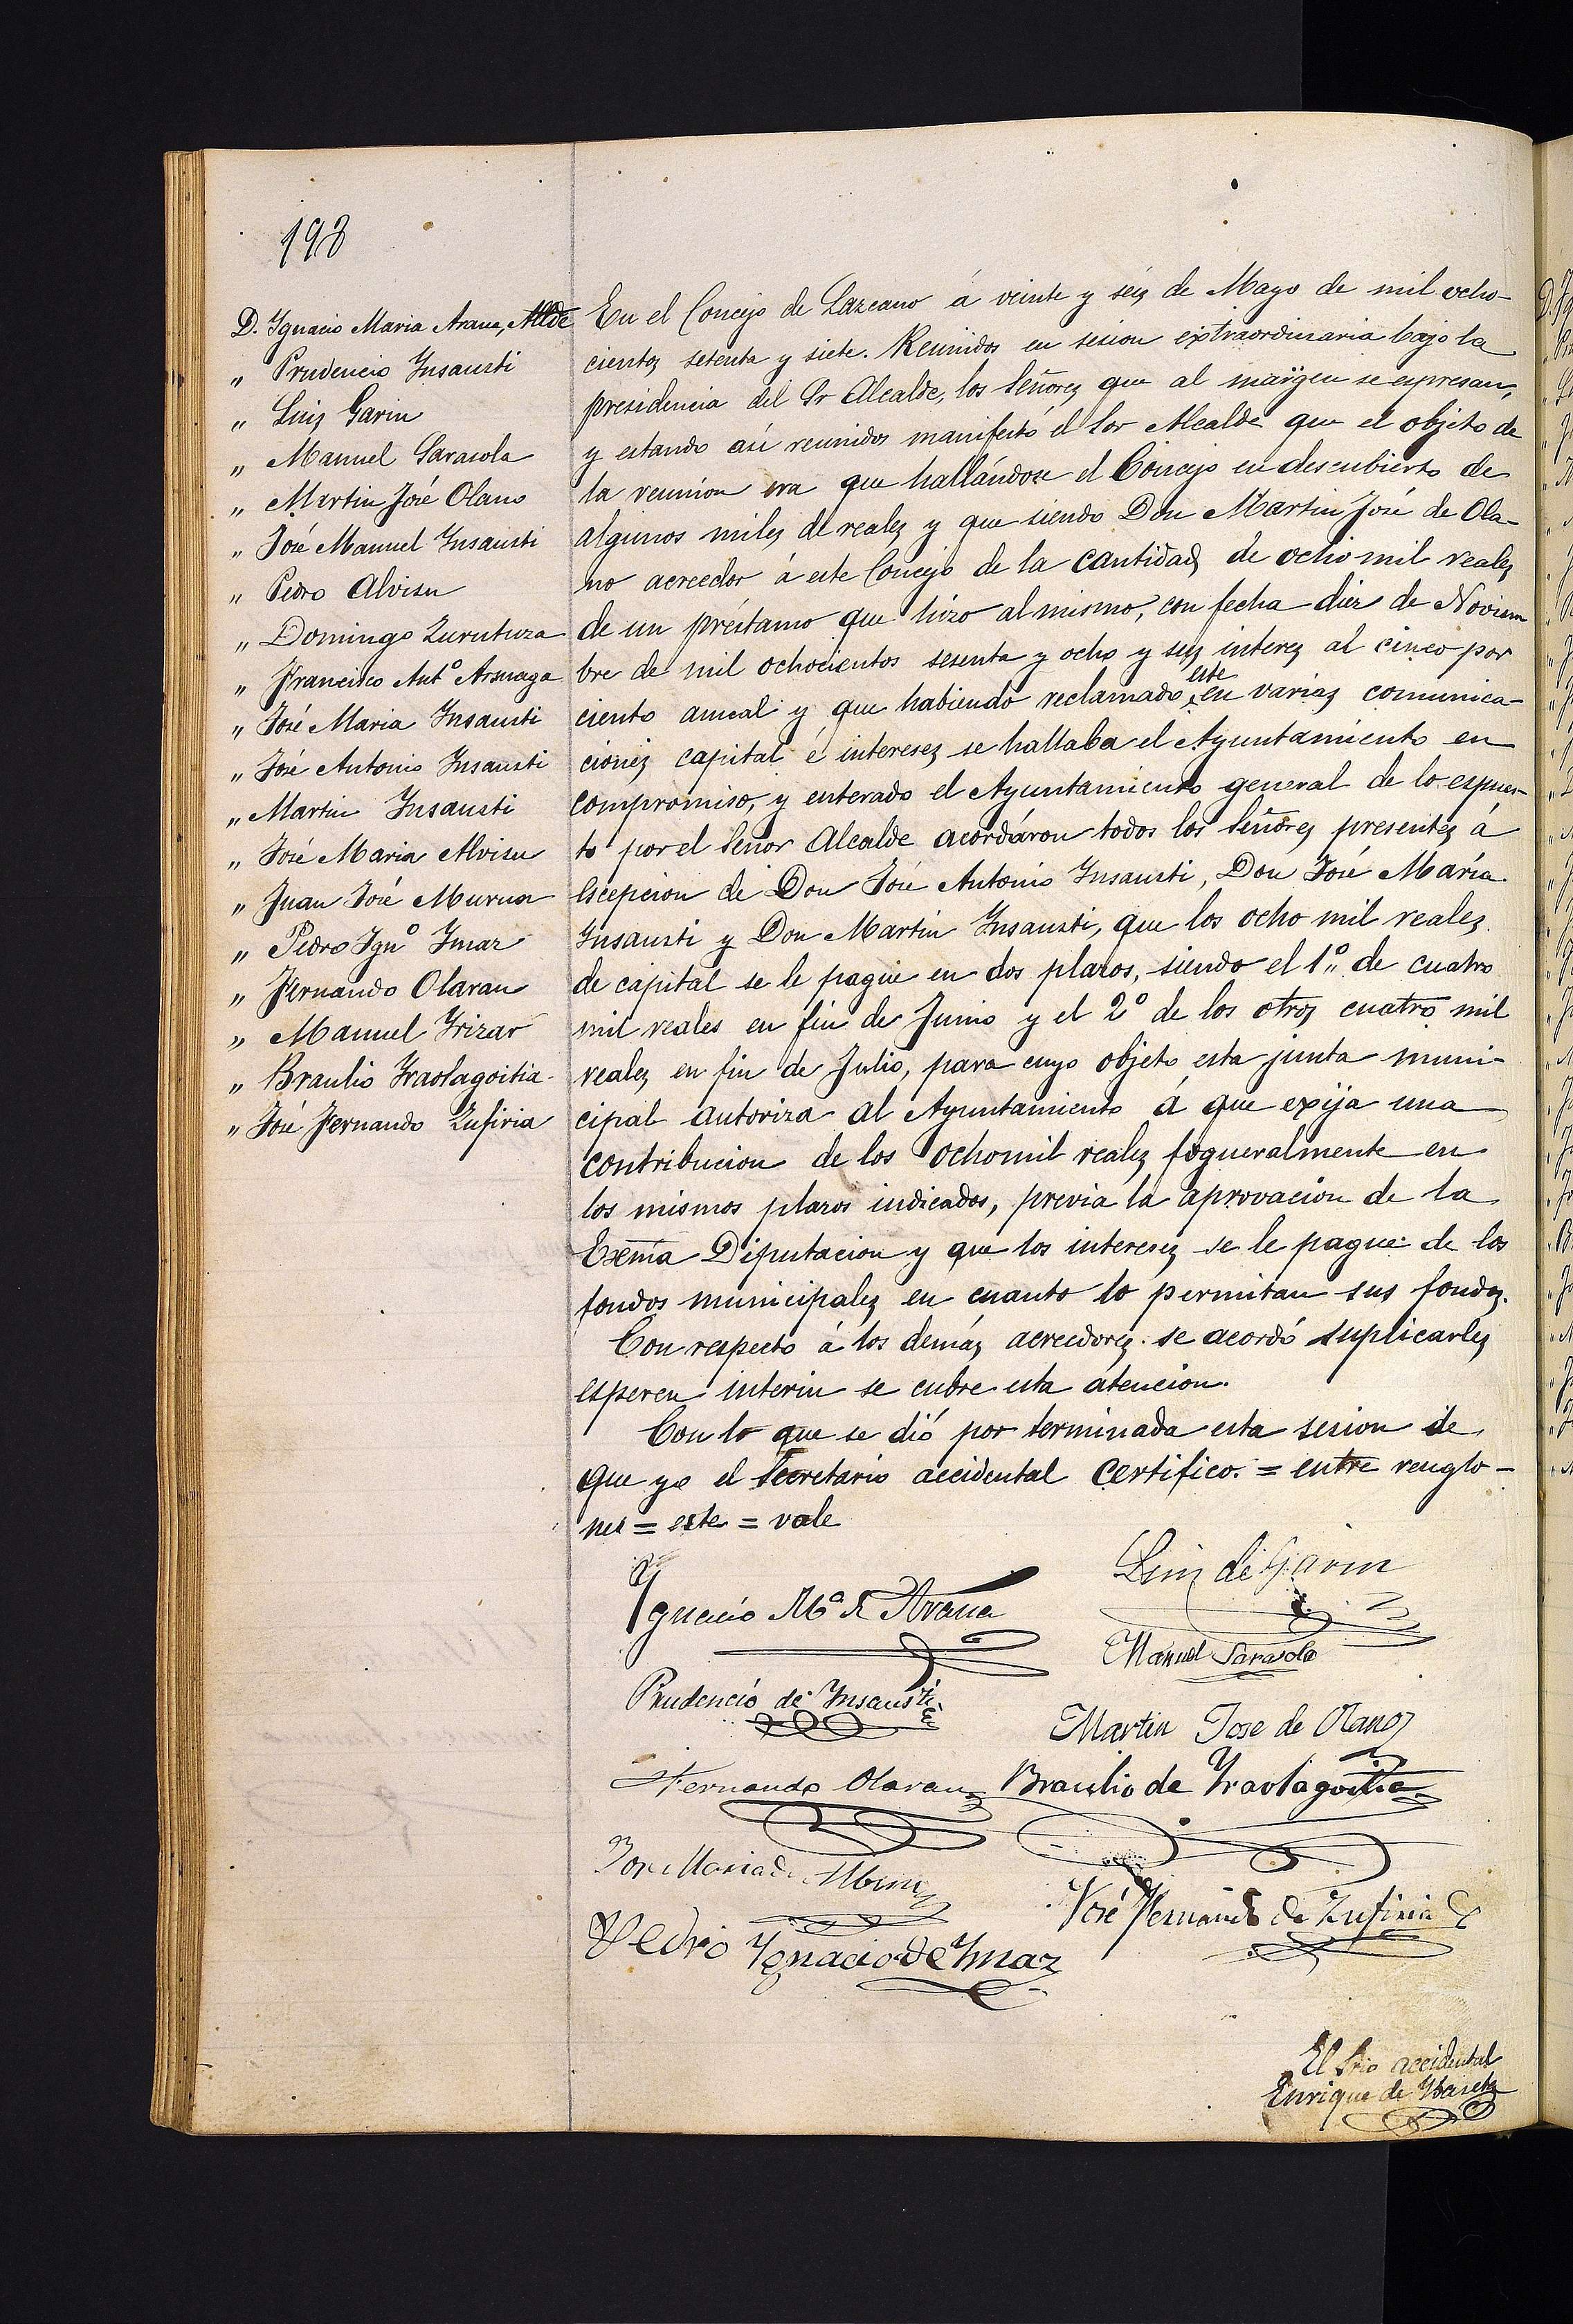 198
D. Ygnacio Maria Arana, Allde
" Prudencio Ynsausti
" Luis Garin
" Manuel Sarasola
" Martin José Olano
" José Manuel Ynsausti
" Pedro Alvisu
" Domingo Zurutuza
" Francisco Antº Arsuaga
" José Maria Ynsausti
" José Antonio Ynsausti
" Martin Ynsausti
" José Maria Alvisu
" Juan José Murua
" Pedro Ygnº Ymaz
" Fernando Olaran
" Manuel Yrizar
" Braulio Yraolagoitia
" José Fernando Zufiria
En el Concejo de Lazcano á veinte y séis de Mayo de mil ocho-
cientos setenta y siete. Reunidos en sesion extraordinaria bajo la
presidencia del Sr Alcalde, los Señores que al márgen se espresan,
y estando asi reunidos manifestó el Sor Alcalde que el objeto de
la reunion era que hallándose el Concejo en descubierto de
algunos miles de reales y que siendo Don Martin José de Ola-
no acreedor á este Concejo de la cantidad de ocho mil reales
de un préstamo que hizo al mismo, con fecha diez de Noviem
bre de mil ochocientos sesenta y ocho y su interes al cinco por
ciento anual y que habiendo reclamado este en varias comunica-
ciones capital é intereses se hallaba el Ayuntamiento en
compromiso, y enterado el Ayuntamiento general de lo espues-
to por el Señor Alcalde acordáron todos los Señores presentes á
escepcion de Don José Antonio Ynsausti, Don José María
Ynsausti y Don Martin Ynsausti, que los ocho mil reales
de capital se le pague en dos plazos, siendo el 1º de cuatro
mil reales en fin de Junio y el 2º de los otros cuatro mil
reales en fin de Julio, para cuyo objeto esta junta muni-
cipal autoriza al Ayuntamiento á que exija una
contribucion de los ochomil reales fogueralmente en
los mismos plazos indicados, previa la aprovacion de la
Exema Diputacion y que los intereses se le pague de los
fondos municipales en cuanto lo permitan sus fondos.
Con respecto á los demás acreedores se acordó suplicarles
esperen interin se cubre esta atencion.
Con lo que se dió por terminada esta sesion de
que yo el Secretario accidental certifico. = entre renglo-
nes = este = vale
Ygnacio Mª de Arana
Luis de Garin
Manuel Sarasola
Prudencio de Ynsausti
Martin Jose de Olano
Fernando Olaran
Braulio de Yraolagoitia
Jose Maria de Albisu
José Fernando de Zufiria
Pedro Ygnacio de Ymaz
El Srio accidental
Enrique de